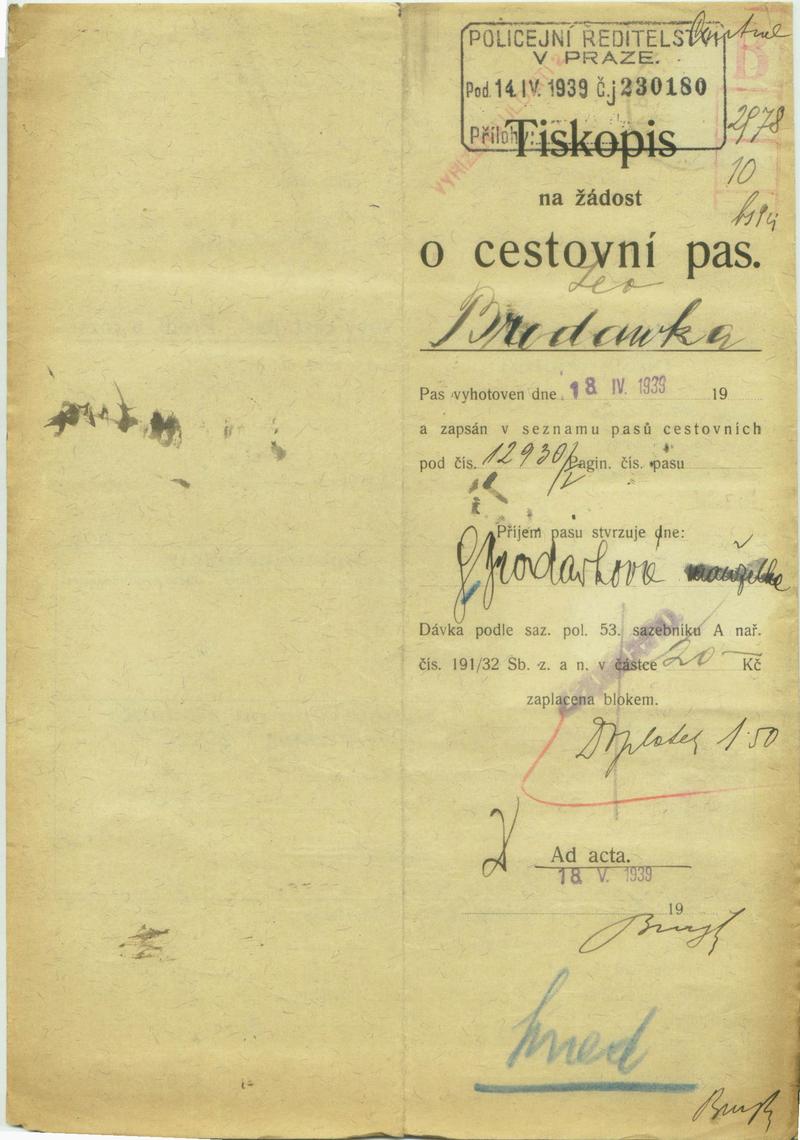 POLICEJNÍ ŘEDITELSTVÍ
V PRAZE.
Pod. 14. IV. 1939 č.j 230180
Přílohy:
B
2978
10
Tiskopis
na žádost
o cestovní pas.
Leo
Brodawka
Pas vyhotoven dne 18 IV. 1939 19
a zapsán v seznamu pasů cestovních
pod čís. 12930/ Pagin. čís. pasu
Příjem pasu stvrzuje dne:
manželka
Dávka podle saz. pol. 53. sazebníku A nař.
čís. 191/32 Sb. z. a n. v částce 20 — Kč
zaplacena blokem.
Doplatek 1·50
Ad acta.
18 V. 1939
19
hned